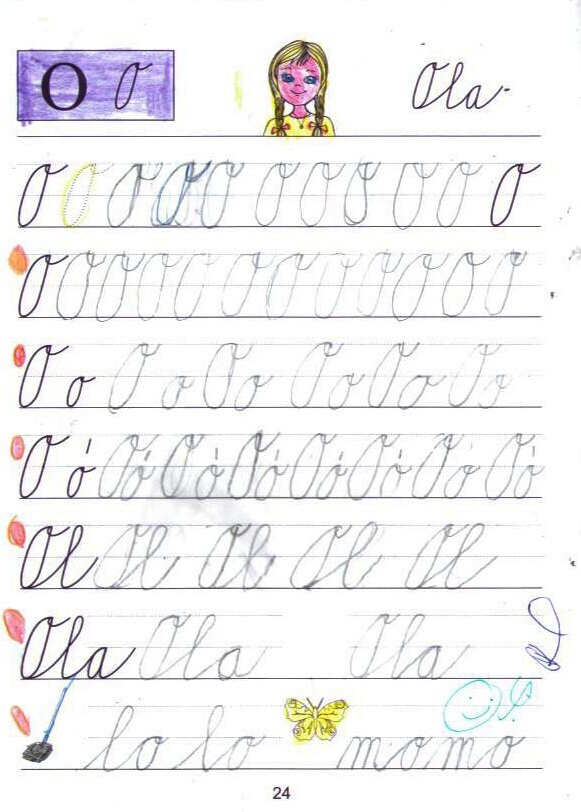 O O Ola
O O O O O O O O O O O
O O O O O O O O O O O O
O o O o O o O o O o O o
O ó O ó O ó O ó O ó O ó O ó O ó
Ol Ol Ol Ol Ol
Ola Ola Ola
lo lo momo
24